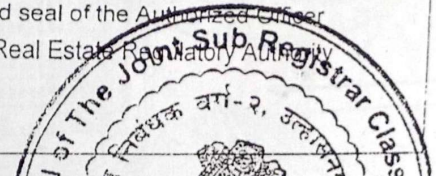 d seal of the Authorized Officer
Real Estate Regulatory Authority
of The Joint Sub Registrar Class
निबंधक वर्ग-२, उल्हासन